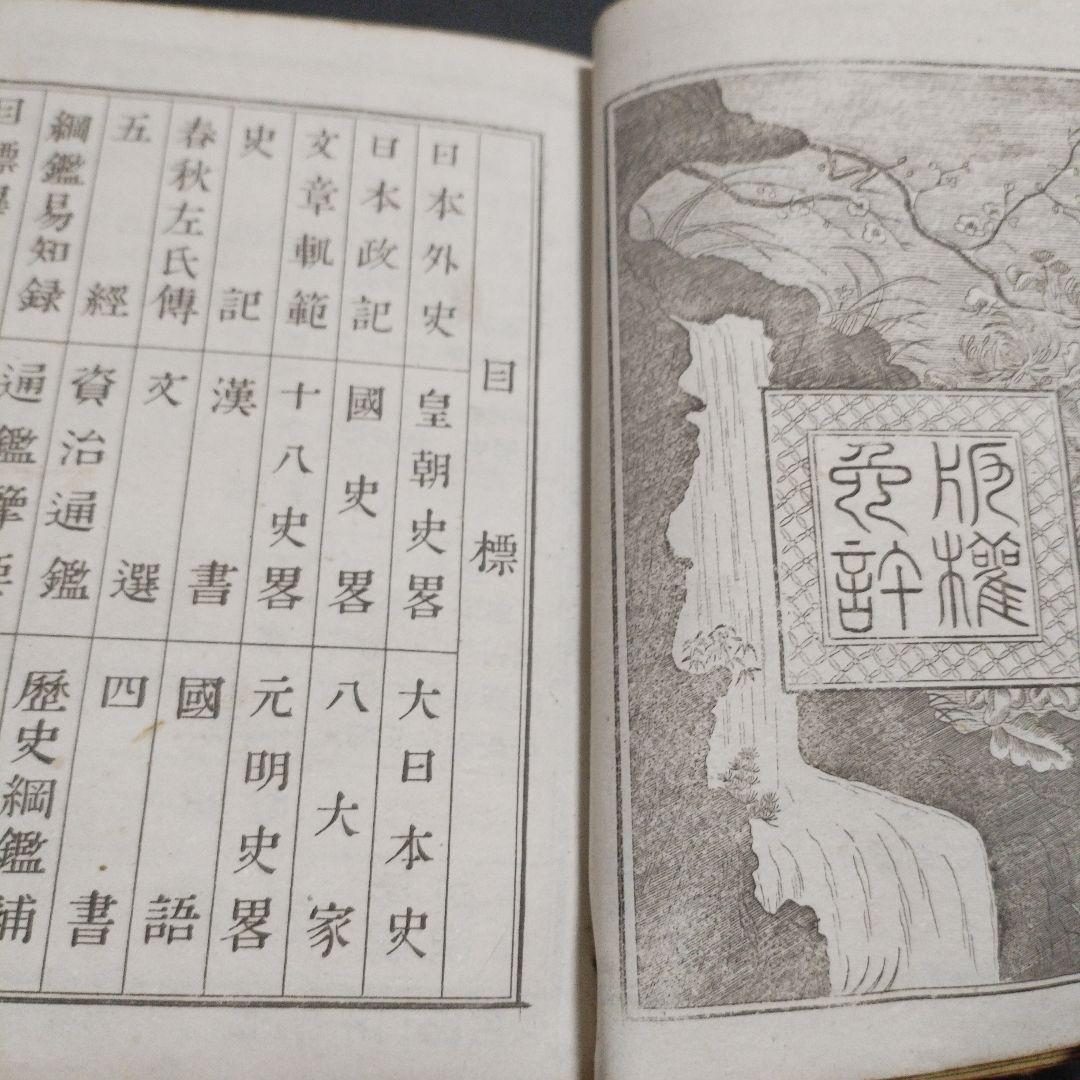 版權
免許
目標
日本外史
皇朝史畧
大日本史
日本政記
國史畧
八大家
文章軌範
十八史畧
元明史畧
史記
漢書
國語
春秋左氏傳
文選
四書
五經
資治通鑑
歷史綱鑑補
綱鑑易知録
通鑑擥要
目標畢